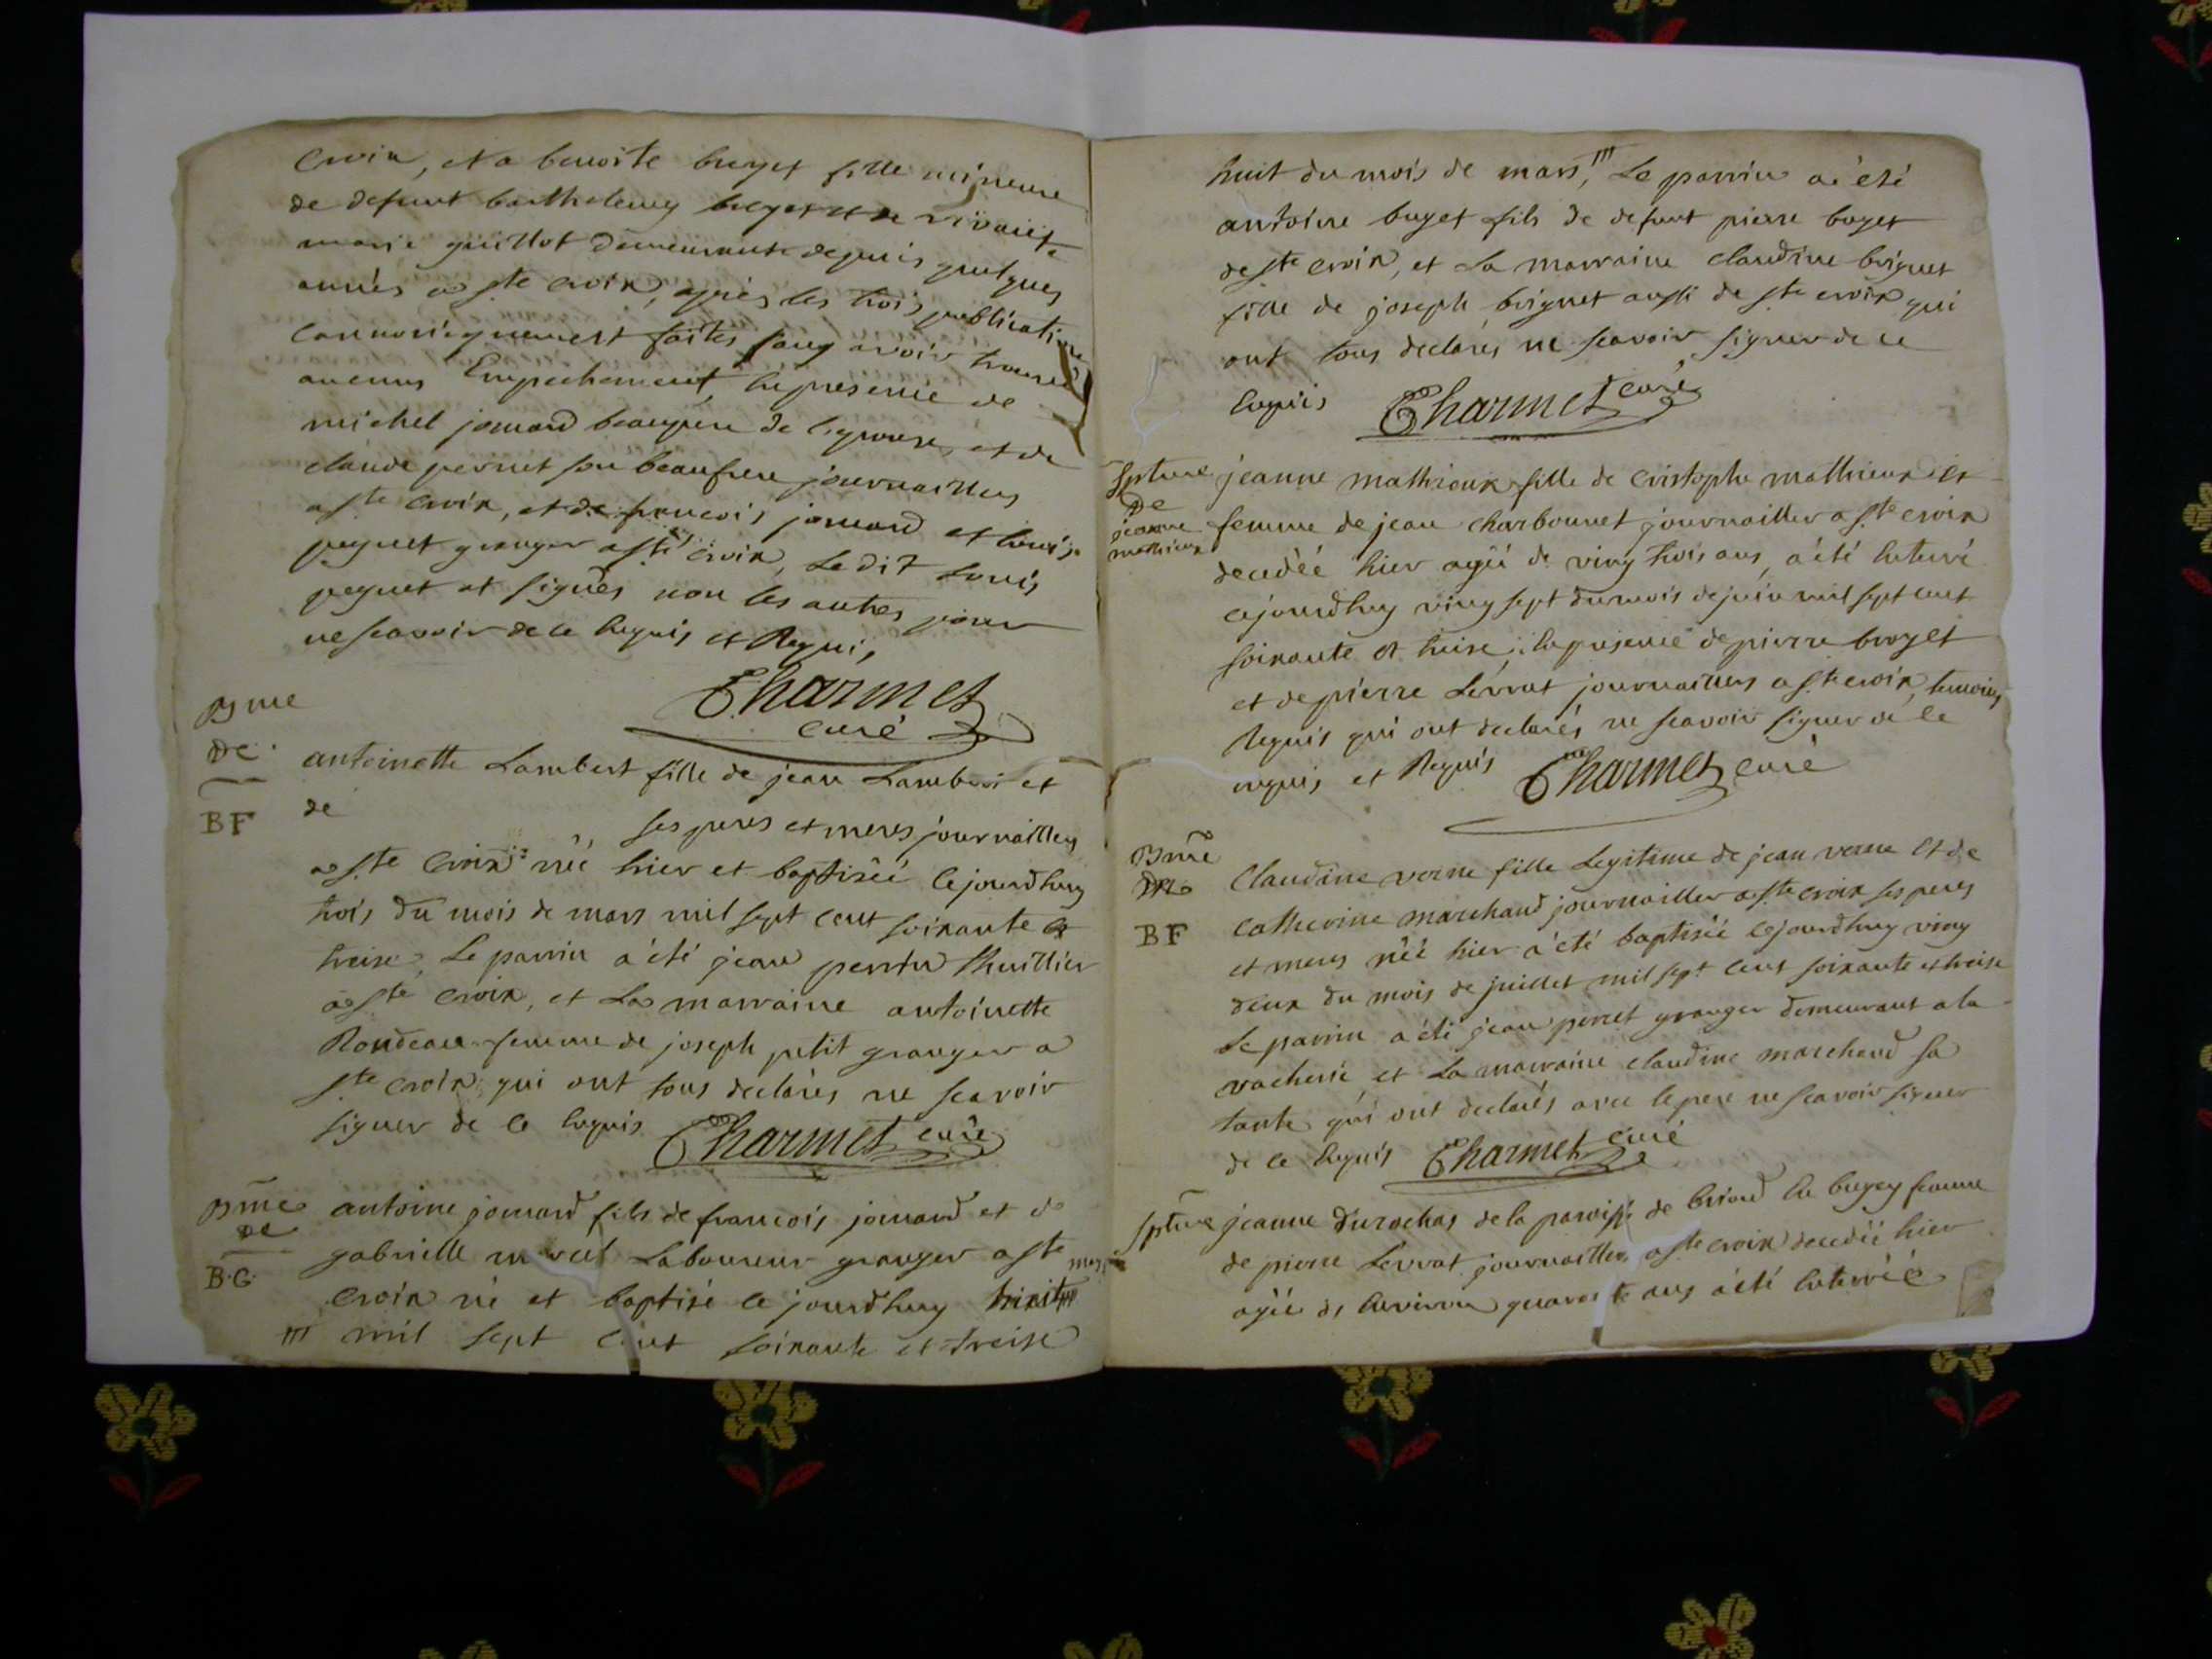 Croix, et a benoite buget fille mineure
de defunt barthelemy buget et de vivante
marie guillot demeurante depuis quelques
annés a ste croix, apres les trois publications
cannoniquement faites sans avoir trouvé
aucuns Empechement, En presence de
michel jomard beaupere de l'epouse, et de
claude pernet son beaufrere journailliers
a ste croix, et de francois jomard et louis
peguet granger a ste croix, Le dit Louis
peguet et signés non les autres pour
ne scavoir de ce Enquis et Requis,
Charmet
curé
Bme
de
BF
antoinette Lambert fille de jean Lambert et
de
ses peres et meres journaillers
a ste Croix née hier et baptiséé cejourdhuy
trois du mois de mars mil sept cent soixante et
treise, Le parrin a été jean perrin thuillier
a ste Croix, et La marraine antoinette
Rondeau femme de joseph petit granger a
ste croix qui ont tous declarés ne scavoir
signer de ce Enquis Charmet curé
Bme
de
B.G.
antoine jomard fils de francois jomard et de
gabrielle Laboureur granger a ste
Croix né et baptisé ce jourdhuy
mil sept cent soixante et treise
huit du mois de mars, Le parrin a été
antoine buget fils de defunt pierre buget
de ste croix, et La marraine claudine briguet
fille de joseph briguet aussi de ste croix qui
ont tous declarés ne scavoir signer de ce
Enquis Charmet curé
Spture
de
jeanne
mathieux
jeanne mathieux fille de Cristophe mathieux et
femme de jean charbonnet journaillier a ste croix
decedéé hier agéé de ving trois ans, a été Enterré
cejourdhuy ving sept du mois de juin mil sept cent
soixante et treise, En presence de pierre broget
et de pierre Levrat journailliers a ste croix, temoins
Requis qui ont declarés ne scavoir signer de ce
enquis et Requis Charmet curé
Bme
de
BF
Claudine verne fille Legitime de jean verne et de
Catherine marchand journaillier a ste croix ses peres
et meres néé hier a été baptiséé cejourdhuy ving
deux du mois de juillet mil sept cent soixante et treise
Le parrin a été jean perret granger demeurant a la
vacherie, et La marraine claudine marchand sa
tante qui ont declarés avec le pere ne scavoir signer
de ce Enquis Charmet curé
Spture
jeanne durochas de la paroisse de briord En bugey femme
de pierre Levrat journaillier a ste croix decedéé hier
agéé de Environ quarante ans a été Enterréé